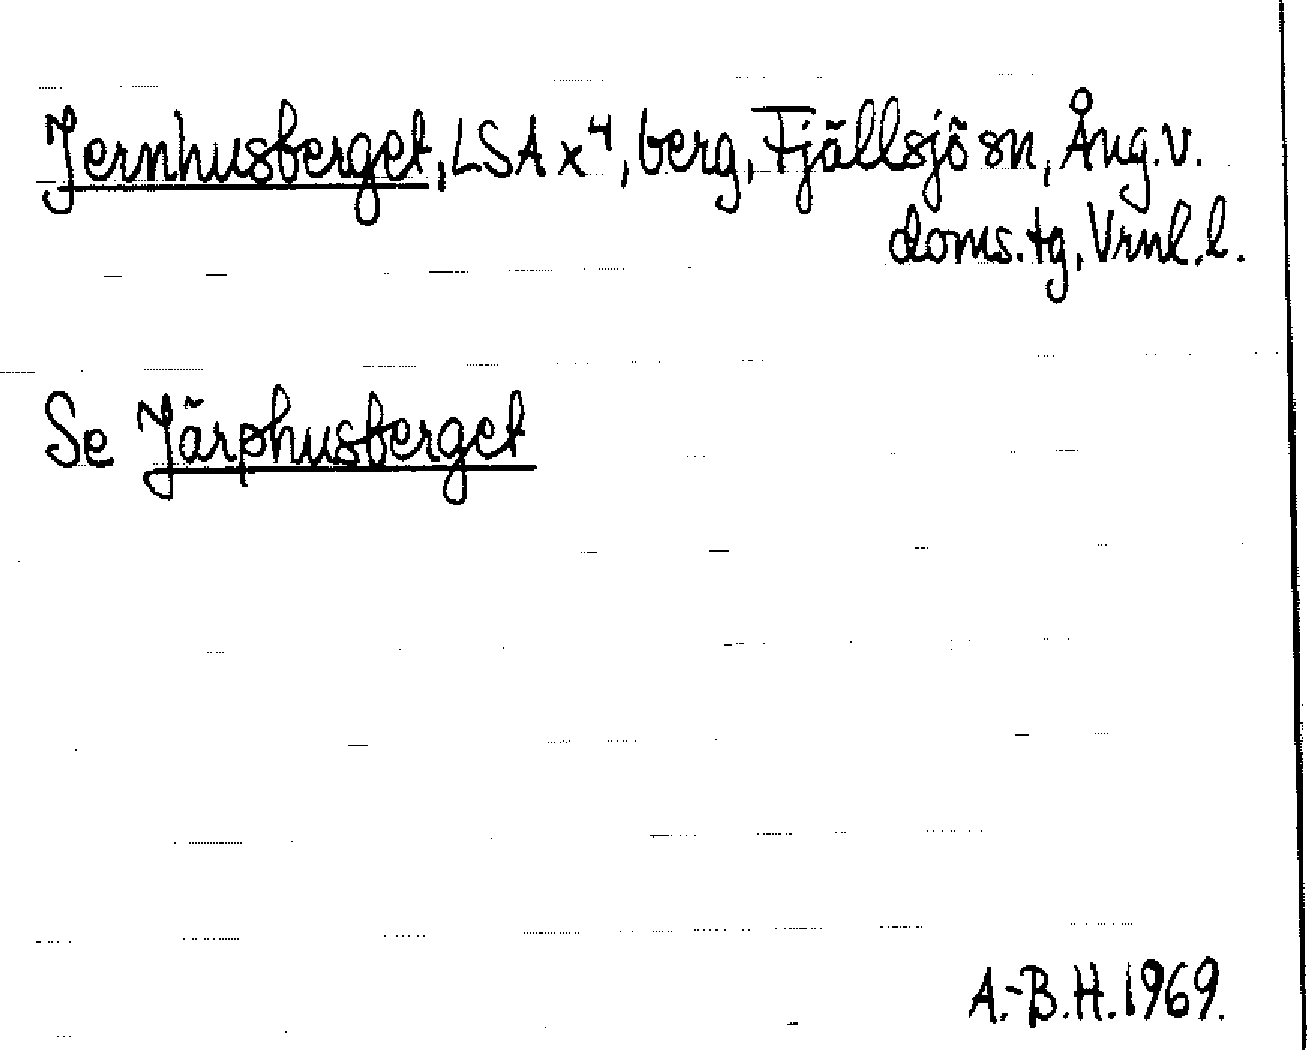 Jernhusberget, LSA x⁴, berg, Fjällsjö sn, Ång.v.
doms.tg, Vrnl.l.
Se Järphusberget
A.-B.H. 1969.